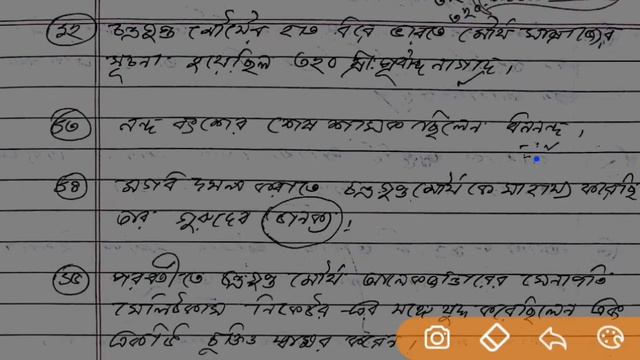 ৩২০
১২ চন্দ্রগুপ্ত মৌর্যের হাত ধরে ভারতে মৌর্য সাম্রাজ্যের
সূচনা হয়েছিল ৩২০ খ্রি: পূর্বাব্দ নাগাদ।
১৩ নন্দ বংশের শেষ শাসক ছিলেন ধননন্দ।
১৪ মগধ দখল করাতে চন্দ্রগুপ্ত মৌর্য কে সাহায্য করেছি
তার গুরুদেব চানক্য।
১৫ পরবর্তীতে চন্দ্রগুপ্ত মৌর্য আলেকজান্ডারের সেনাপতি
সেলিউকাস নিকেটর এর সঙ্গে যুদ্ধ করেছিলেন এবং
একটি চুক্তি স্বাক্ষর করেন।